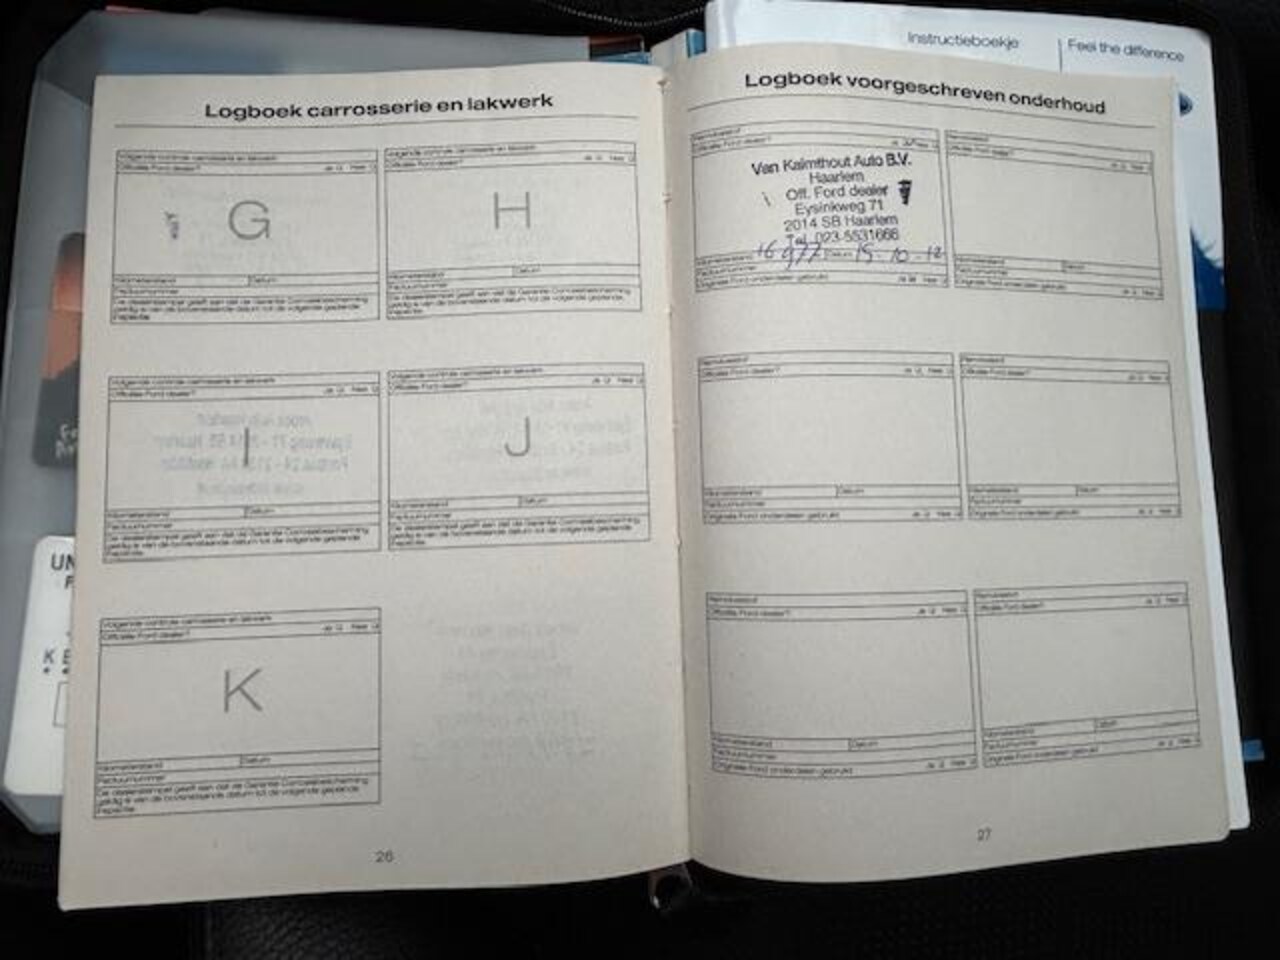 Instructieboekje
Feel the difference
Logboek carrosserie en lakwerk
Volgende controle carrosserie en lakwerk
Officiële Ford dealer? Ja Nee
G
Kilometerstand Datum
Factuurnummer
De dealerstempel geeft aan dat de Garantie Carrosseriebescherming
geldig is van de bovenstaande datum tot de volgende geplande
inspectie.
Volgende controle carrosserie en lakwerk
Officiële Ford dealer? Ja Nee
H
Kilometerstand Datum
Factuurnummer
De dealerstempel geeft aan dat de Garantie Carrosseriebescherming
geldig is van de bovenstaande datum tot de volgende geplande
inspectie.
Volgende controle carrosserie en lakwerk
Officiële Ford dealer? Ja Nee
I
Kilometerstand Datum
Factuurnummer
De dealerstempel geeft aan dat de Garantie Carrosseriebescherming
geldig is van de bovenstaande datum tot de volgende geplande
inspectie.
Volgende controle carrosserie en lakwerk
Officiële Ford dealer? Ja Nee
J
Kilometerstand Datum
Factuurnummer
De dealerstempel geeft aan dat de Garantie Carrosseriebescherming
geldig is van de bovenstaande datum tot de volgende geplande
inspectie.
Volgende controle carrosserie en lakwerk
Officiële Ford dealer? Ja Nee
K
Kilometerstand Datum
Factuurnummer
De dealerstempel geeft aan dat de Garantie Carrosseriebescherming
geldig is van de bovenstaande datum tot de volgende geplande
inspectie.
26
Logboek voorgeschreven onderhoud
Officiële Ford dealer? Ja Nee
Van Kalmthout Auto B.V.
Haarlem
Off. Ford dealer
Eysinkweg 71
2014 SB Haarlem
Tel. 023-5531666
Kilometerstand 16977 Datum 15-10-12
Factuurnummer
Originele Ford onderdelen gebruikt Ja Nee
Officiële Ford dealer? Ja Nee
Kilometerstand Datum
Factuurnummer
Originele Ford onderdelen gebruikt Ja Nee
Officiële Ford dealer? Ja Nee
Kilometerstand Datum
Factuurnummer
Originele Ford onderdelen gebruikt Ja Nee
Officiële Ford dealer? Ja Nee
Kilometerstand Datum
Factuurnummer
Originele Ford onderdelen gebruikt Ja Nee
Officiële Ford dealer? Ja Nee
Kilometerstand Datum
Factuurnummer
Originele Ford onderdelen gebruikt Ja Nee
Officiële Ford dealer? Ja Nee
Kilometerstand Datum
Factuurnummer
Originele Ford onderdelen gebruikt Ja Nee
27